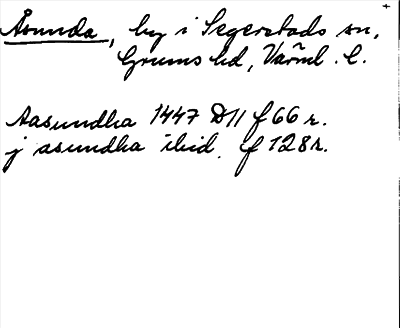 Åsunda, by i Segerstads sn,
Grums hd, Värml. l.
Aasundha 1447 D11 f 66 r.
j asundha ibid. f 128r.